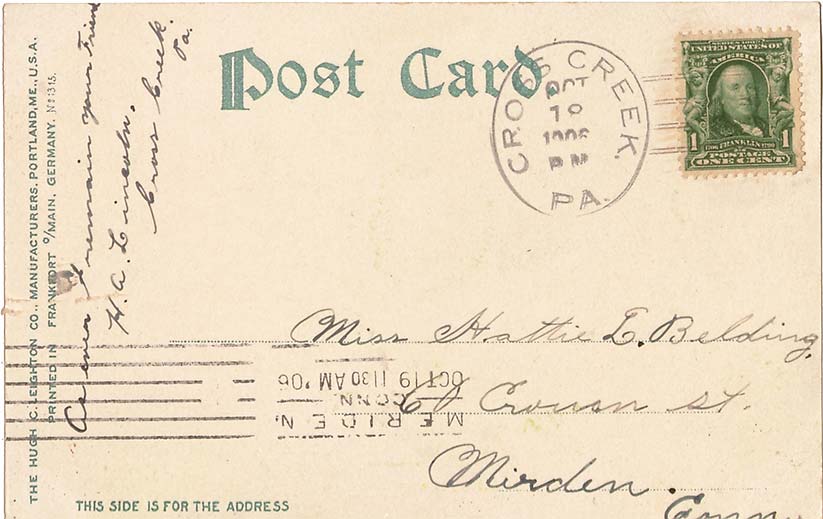 THE HUGH C. LEIGHTON CO., MANUFACTURERS, PORTLAND, ME., U.S.A.
PRINTED IN FRANKFORT O/MAIN, GERMANY. No 1315.
As ever I remain your Friend
H. A. Lincoln.
Cross Creek.
Pa.
Post Card
CROSS CREEK.
OCT
1906
PM
PA.
SERIES 1902
UNITED STATES OF
AMERICA
1 1
1706 FRANKLIN 1790
POSTAGE
ONE CENT
Miss Hattie E. Belding,
MERIDEN.
CONN.
OCT 19 1130 AM '06
61 Crown st.
Mirden.
Conn
THIS SIDE IS FOR THE ADDRESS